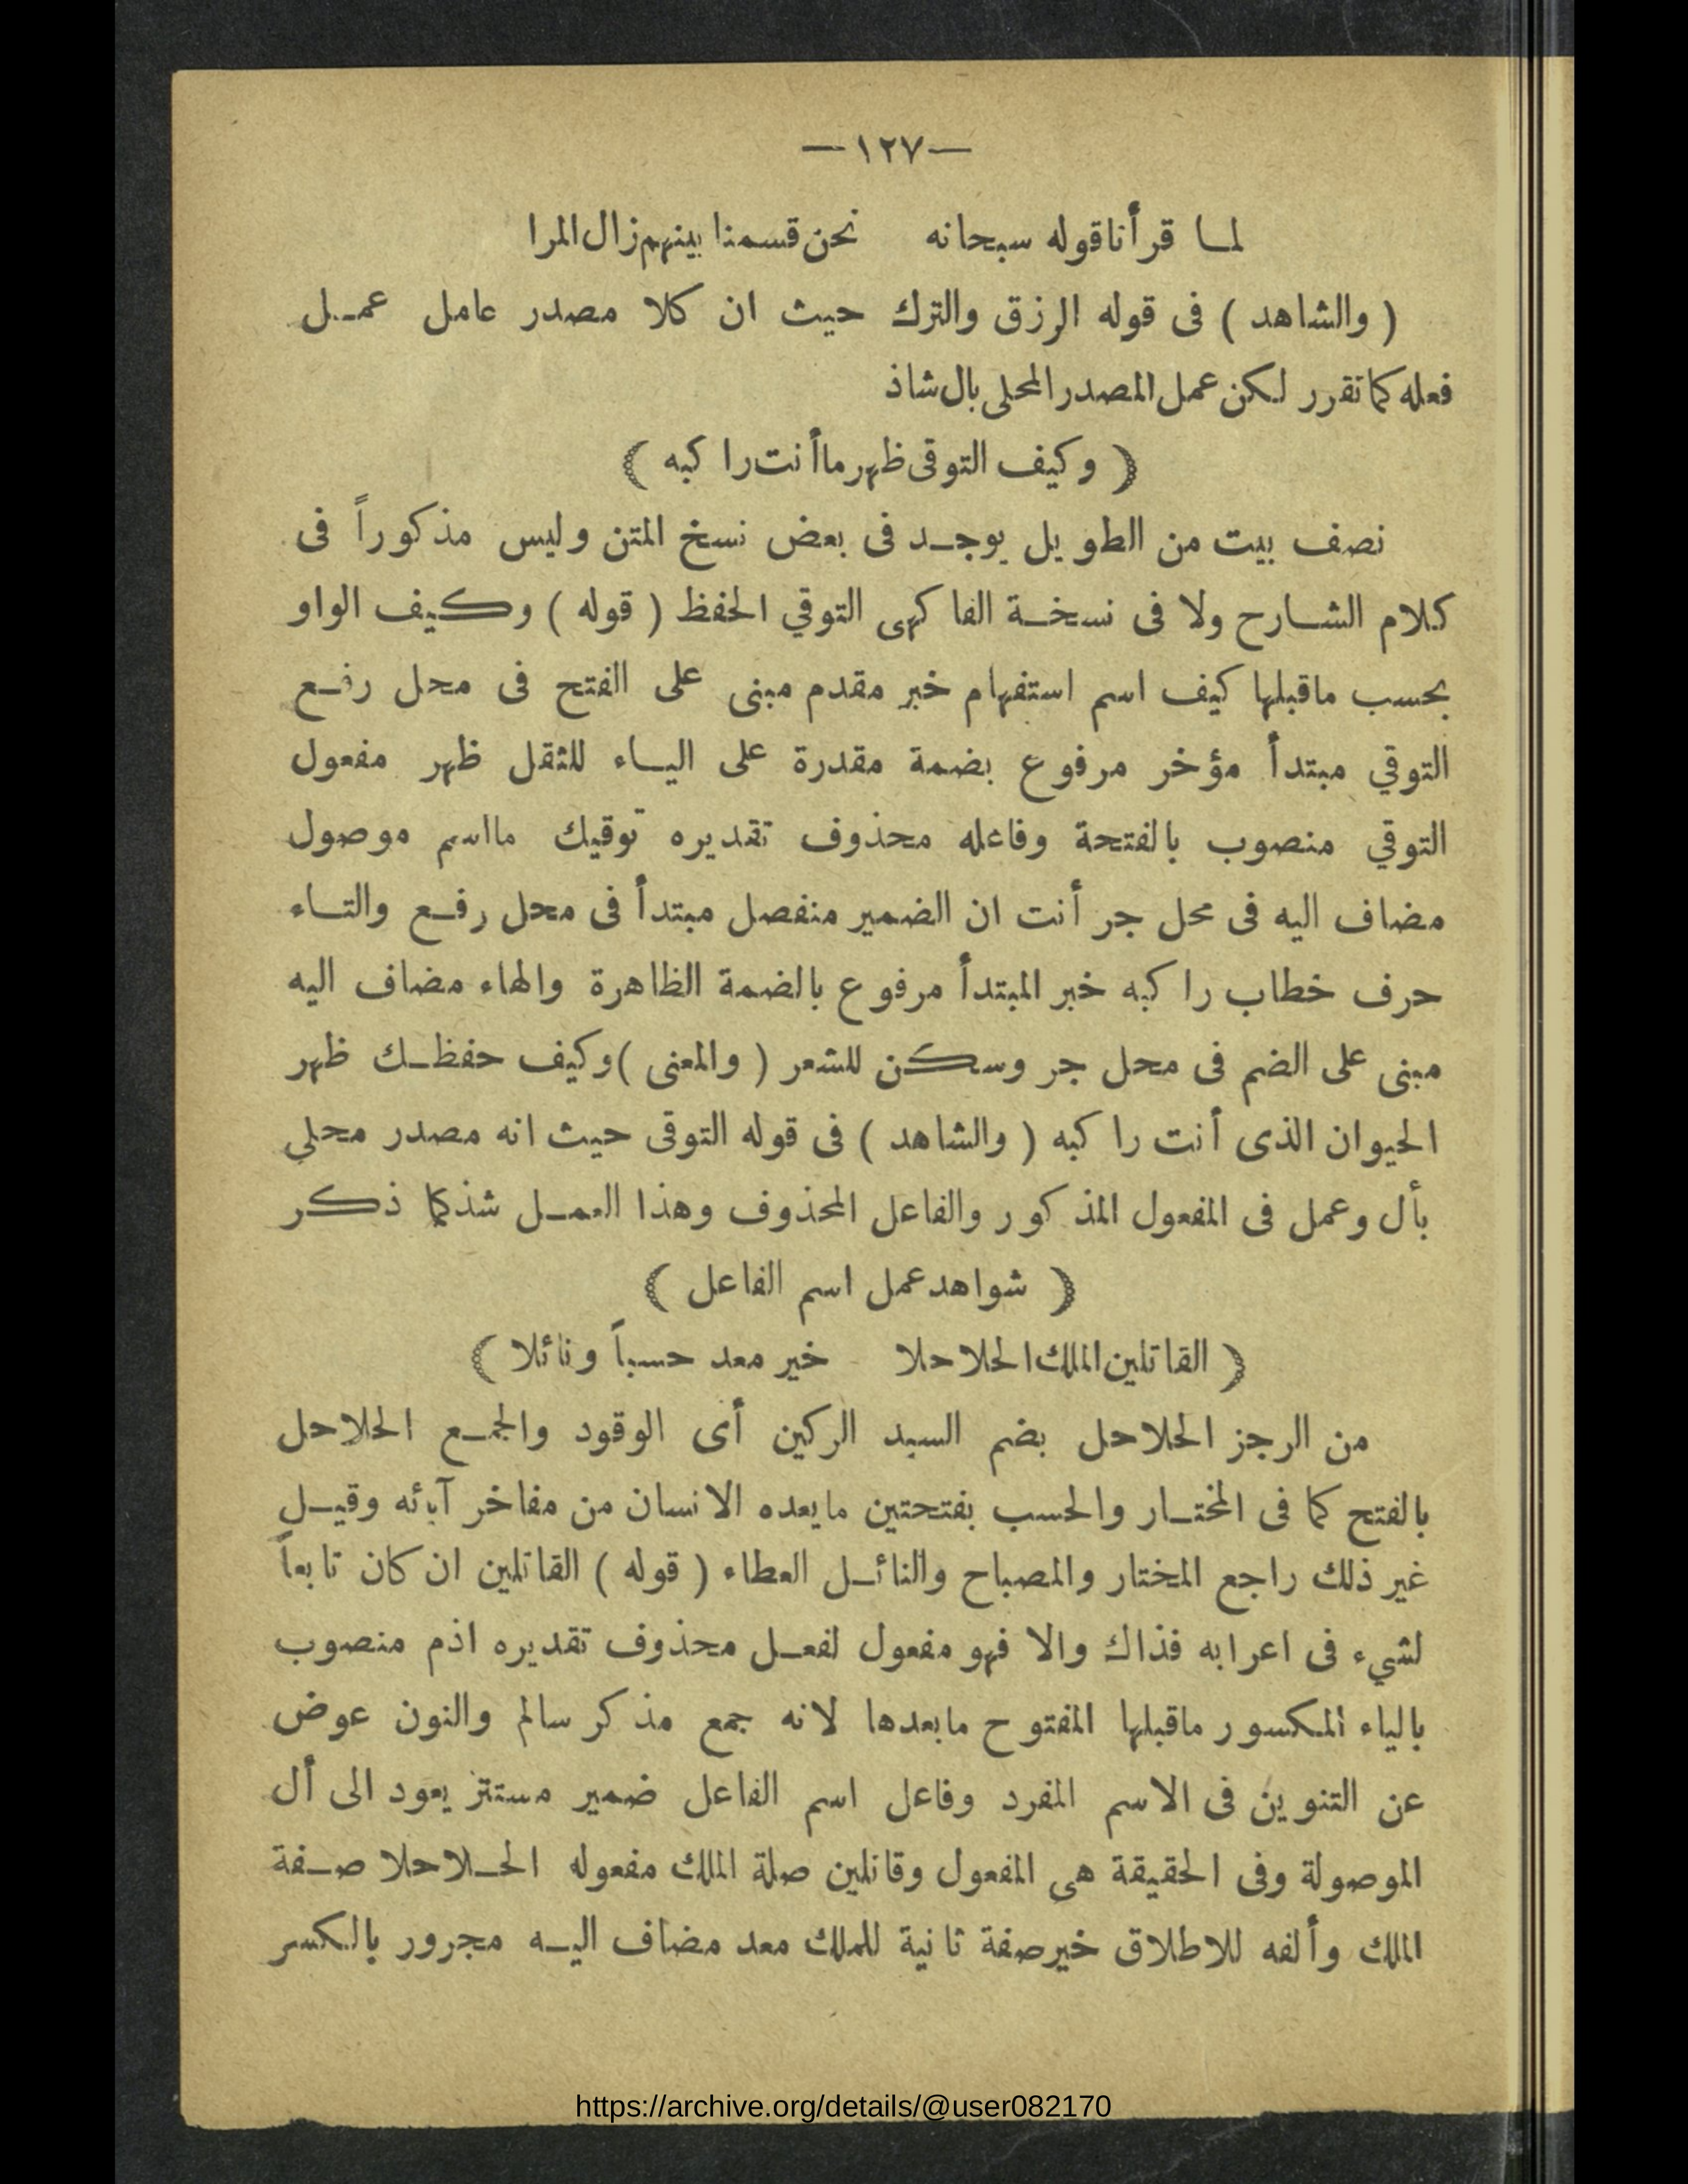 —١٢٧—
لما قرأنا قوله سبحانه نحن قسمنا بينهم زال المرا
( والشاهد ) فى قوله الرزق والترك حيث ان كلا مصدر عامل عمل
فعله كما تقرر لكن عمل المصدر المحلى بال شاذ
( وكيف التوقى ظهر ما أنت راكبه )
نصف بيت من الطويل يوجد فى بعض نسخ المتن وليس مذكوراً فى
كلام الشارح ولا فى نسخة الفاكهى التوقي الحفظ ( قوله ) وكيف الواو
بحسب ماقبلها كيف اسم استفهام خبر مقدم مبنى على الفتح فى محل رفع
التوقي مبتدأ مؤخر مرفوع بضمة مقدرة على الياء للثقل ظهر مفعول
التوقي منصوب بالفتحة وفاعله محذوف تقديره توقيك ما اسم موصول
مضاف اليه فى محل جر أنت ان الضمير منفصل مبتدأ فى محل رفع والتاء
حرف خطاب راكبه خبر المبتدأ مرفوع بالضمة الظاهرة والهاء مضاف اليه
مبنى على الضم فى محل جر وسكن للشعر ( والمعنى ) وكيف حفظك ظهر
الحيوان الذى أنت راكبه ( والشاهد ) فى قوله التوقى حيث انه مصدر محلي
بأل وعمل فى المفعول المذكور والفاعل المحذوف وهذا العمل شذ كما ذكر
( شواهد عمل اسم الفاعل )
( القاتلين الملك الحلاحلا خير معد حسباً ونائلا )
من الرجز الحلاحل بضم السيد الركين أى الوقود والجمع الحلاحل
بالفتح كما فى المختار والحسب بفتحتين مايعده الانسان من مفاخر آبائه وقيل
غير ذلك راجع المختار والمصباح والنائل العطاء ( قوله ) القاتلين ان كان تابعاً
لشيء فى اعرابه فذاك والا فهو مفعول لفعل محذوف تقديره اذم منصوب
بالياء المكسور ماقبلها المفتوح مابعدها لانه جمع مذكر سالم والنون عوض
عن التنوين فى الاسم المفرد وفاعل اسم الفاعل ضمير مستتر يعود الى أل
الموصولة وفى الحقيقة هى المفعول وقاتلين صلة الملك مفعوله الحلاحلا صفة
الملك وألفه للاطلاق خير صفة ثانية للملك معد مضاف اليه مجرور بالكسر
https://archive.org/details/@user082170